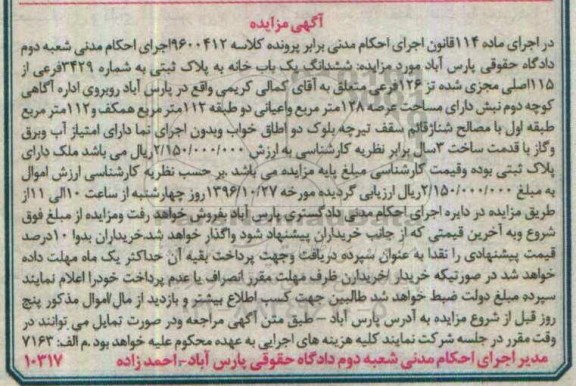 آگهی مزایده
در اجرای ماده ۱۱۴قانون اجرای احکام مدنی برابر پرونده کلاسه ۹۶۰۰۴۱۲اجرای احکام مدنی شعبه دوم
دادگاه حقوقی پارس آباد مورد مزایده: ششدانگ یک باب خانه به پلاک ثبتی به شماره ۳۴۲۹فرعی از
۱۱۵اصلی مجزی شده تز ۱۲۶فرعی متعلق به آقای کمالی کریمی واقع در پارس آباد روبروی اداره آگاهی
کوچه دوم نبش دارای مساحت عرصه ۱۲۸متر مربع واعیانی دو طبقه ۱۱۲متر مربع همکف و۱۱۲متر مربع
طبقه اول با مصالح شناژقائم سقف تیرچه بلوک دو اطاق خواب وبدون اجرای نما دارای امتیاز آب وبرق
وگاز با قدمت ساخت ۳سال برابر نظریه کارشناسی به ارزش ۲/۱۵۰/۰۰۰/۰۰۰ریال می باشد ملک دارای
پلاک ثبتی بوده وقیمت کارشناسی مبلغ پایه مزایده می باشد .بر حسب نظریه کارشناسی ارزش اموال
به مبلغ ۲/۱۵۰/۰۰۰/۰۰۰ریال ارزیابی گردیده مورخه ۱۳۹۶/۱۰/۲۷روز چهارشنبه از ساعت ۱۰الی ۱۱از
طریق مزایده در دایره اجرای احکام مدنی دادگستری پارس آباد بفروش خواهد رفت ومزایده از مبلغ فوق
شروع وبه آخرین قیمتی که از جانب خریداران پیشنهاد شود واگذار خواهد شد.خریداران بدوا ۱۰درصد
قیمت پیشنهادی را نقدا به عنوان سپرده دریافت وجهت پرداخت بقیه آن حداکثر یک ماه مهلت داده
خواهد شد در صورتیکه خریدار اخریدارن ظرف مهلت مقرر انصراف یا عدم پرداخت خودرا اعلام نمایند
سپرده مبلغ دولت ضبط خواهد شد طالبین جهت کسب اطلاع بیشتر و بازدید از مال/اموال مذکور پنج
روز قبل از شروع مزایده به آدرس پارس آباد – طبق متن آگهی مراجعه ودر صورت تمایل می توانند در
وقت مقرر در جلسه شرکت نمایند کلیه هزینه های اجرایی به عهده محکوم علیه خواهد بود .م الف: ۷۱۶۳
مدیر اجرای احکام مدنی شعبه دوم دادگاه حقوقی پارس آباد-احمد زاده ۱۰۳۱۷